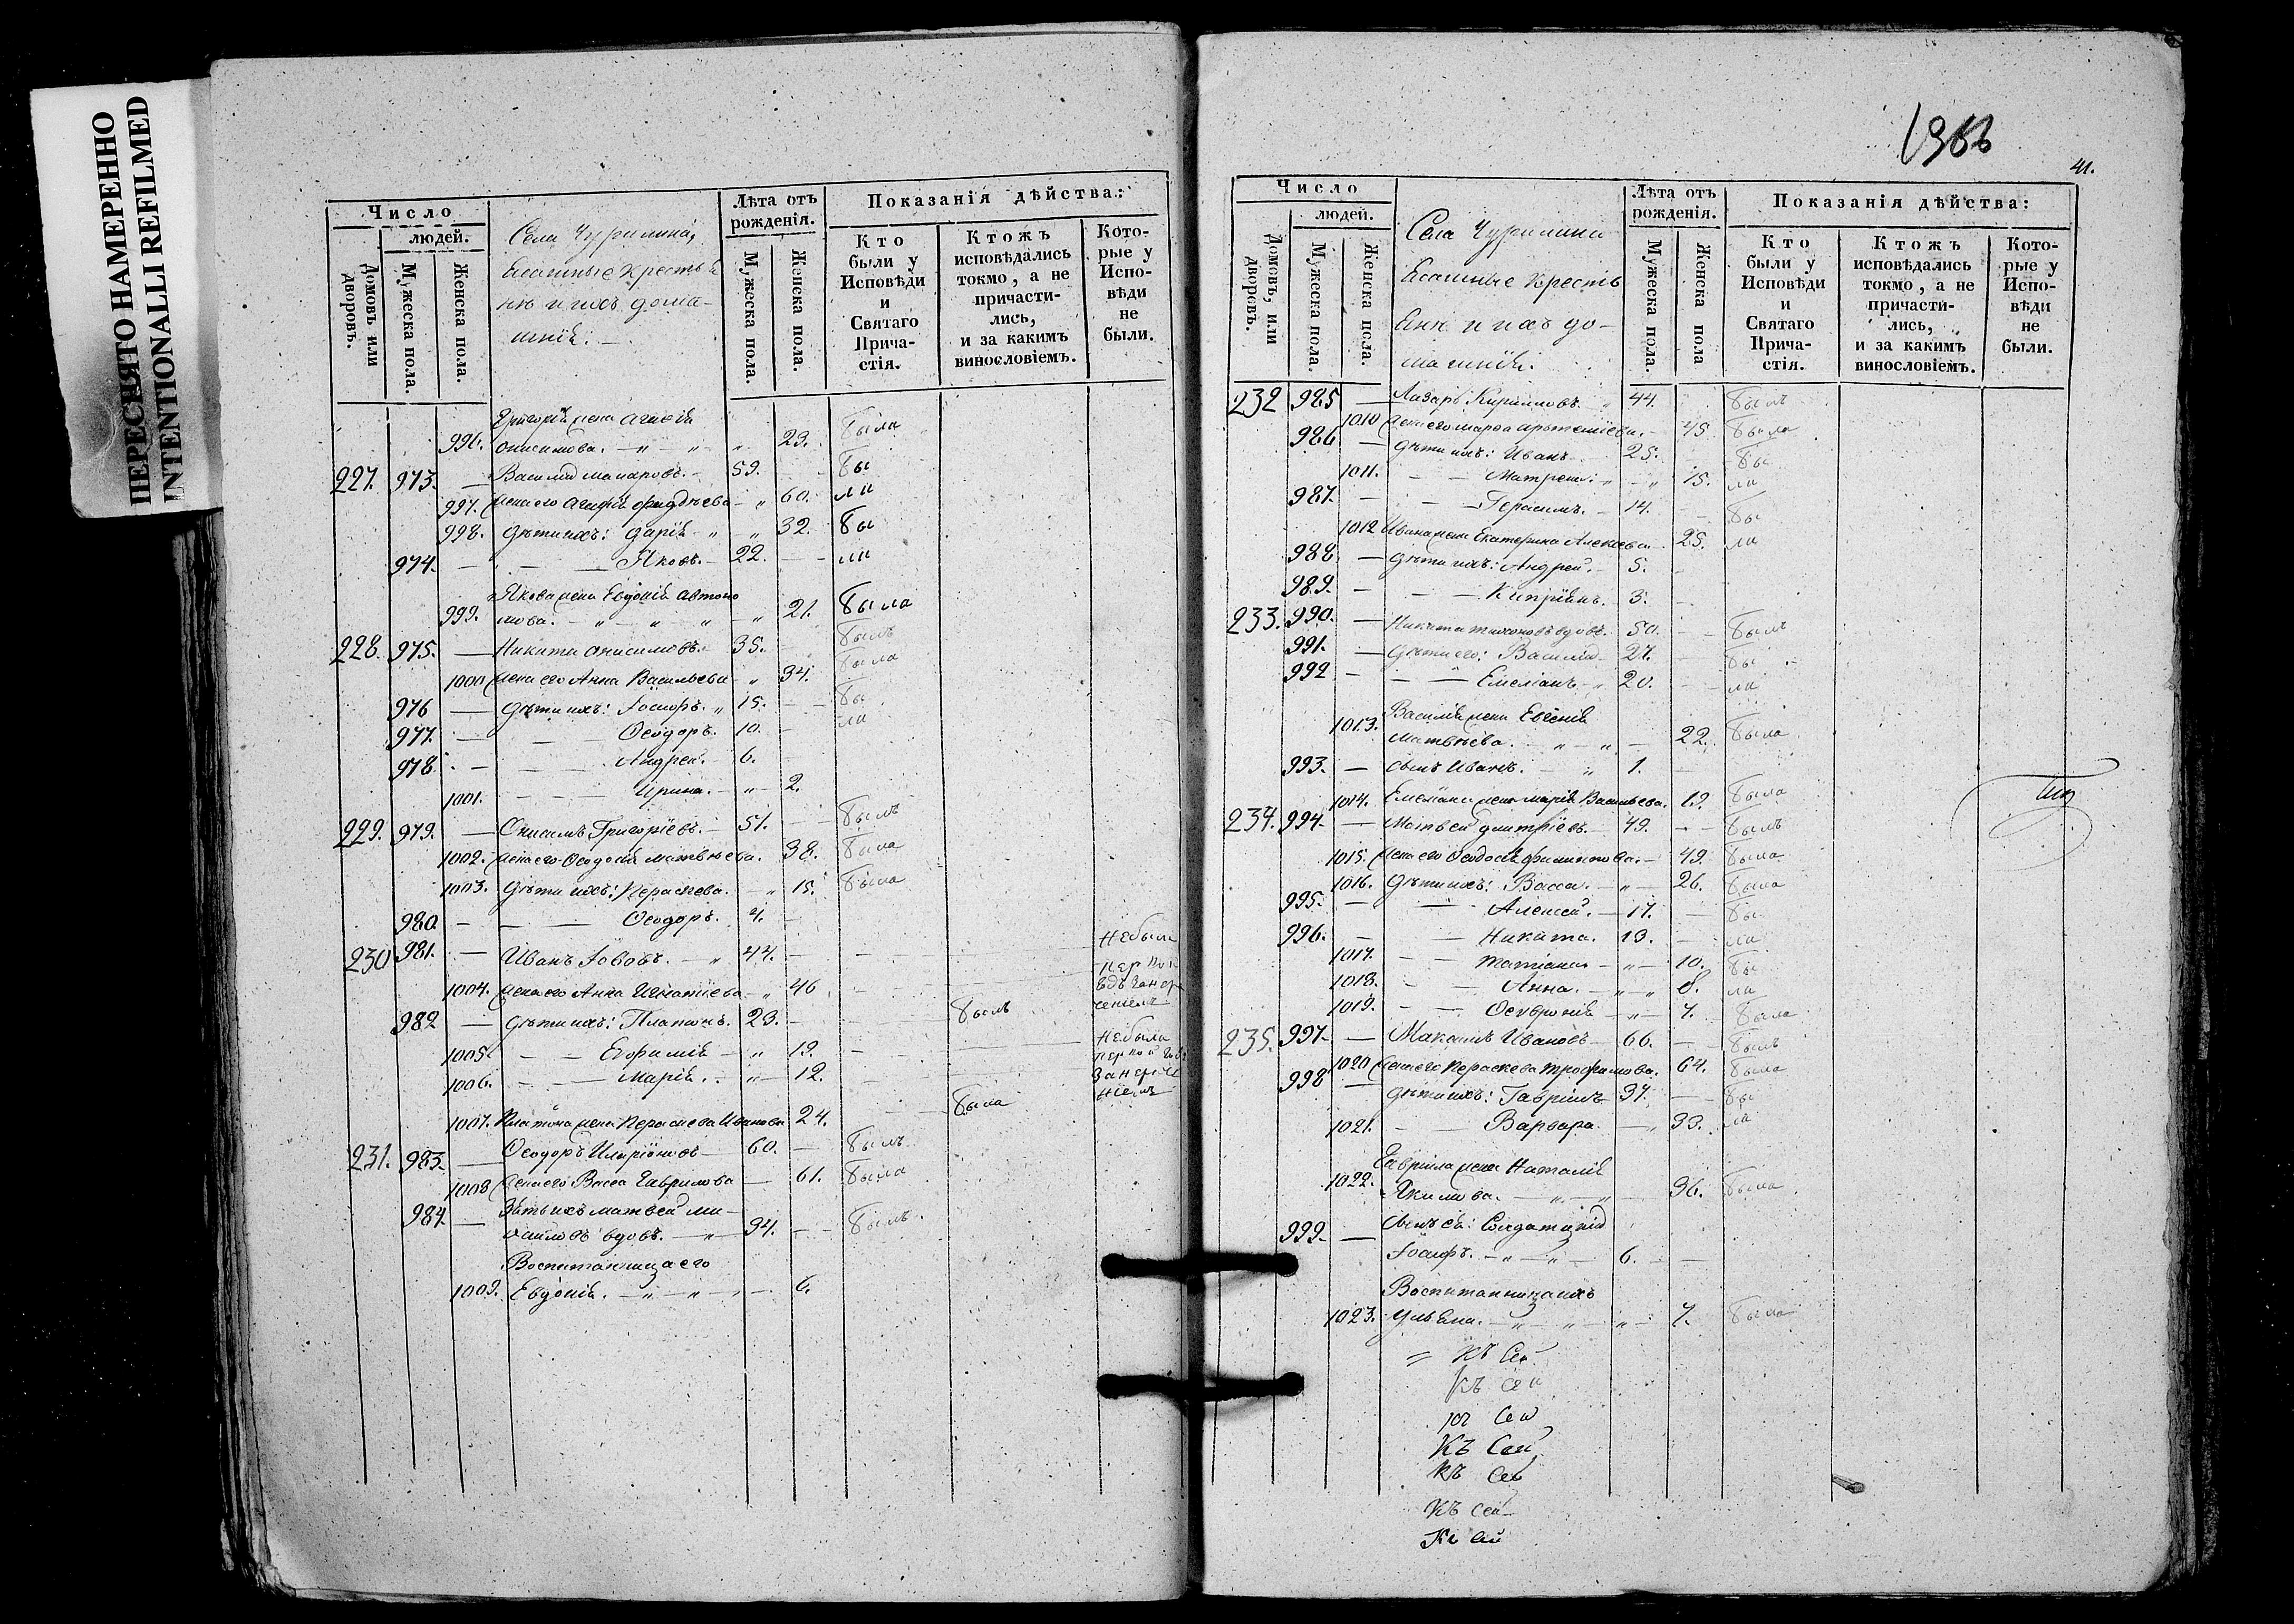 ПЕРЕСНЯТО НАМЕРЕННО
INTENTIONALLI REFILMED
Число
людей.
Домовъ или дворовъ.
Мужеска пола.
Женска пола.
Села Чурилина,
крестья
не и ихъ дома-
шніе:
Лѣта отъ рожденія.
Мужеска пола.
Женска пола.
Показанія дѣйства:
Кто были у Исповѣди и Святаго Прича-стія.
Ктожъ исповѣдались токмо, а не причасти-лись, и за какимъ винословіемъ.
Кото-рые у Испо-вѣди не были.
Григорія жена
996. Онисимова. — „ — „ — „ 23. была
227. 973. — Василій Макаровъ. — 59. — бы
997. жена его Агафія — „ 60. ли
998. дѣти ихъ: Дарія — „ „ 32. бы
974. — — — Яковъ. — 22. — ли
Якова жена Евдокія Автоно
999. мова. — „ — „ — „ — „ 21. была
228. 975. — Никита Онисимовъ. 35. былъ
1000 жена его Анна Васильева — „ 34. была
976 — дѣти ихъ: Іосифъ. „ 15. — бы
977. — — — Ѳеодоръ. 10. — ли
978. — — — Андрей. — 6. —
1001. — — — Ирина. — „ — 2.
229. 979. — Онисимъ Григоріевъ. — 51. — былъ
1002. жена его Ѳеодосія Матвѣева. 38. была
1003. дѣти ихъ: Параскева. — „ 15. была
980. — — — Ѳеодоръ. 4. —
230 981. — Иванъ Іововъ. — „ 44. — Небыли
1004. жена его Анна Игнатіева — „ 46
982 — дѣти ихъ: Платонъ. 23. — былъ
1005. — — Евфимія — „ 19. — Небыли
1006. — — Марія. — „ — 12.
1007. Платона жена Параскева Иванова 24. — была
231. 983. — Ѳеодоръ Иларіоновъ — 60. — былъ
1008 жена его Васса Гаврилова — 61. была
984. — Зять ихъ Матвей Ми-
хайловъ вдовъ. — „ — 34. — былъ
Воспитанница его
1009. Евдокія. — „ — „ — 6.
1366
41.
Число
людей.
Домовъ, или дворовъ.
Мужеска пола.
Женска пола.
Села Чурилина
крестья
не и ихъ до-
машніе:
Лѣта отъ рожденія.
Мужеска пола.
Женска пола
Показанія дѣйства:
Кто были у Исповѣди и Святаго Прича-стія.
Ктожъ исповѣдались токмо, а не причасти-лись, и за какимъ винословіемъ.
Кото-рые у Испо-вѣди не были.
232 985 — Лазарь Кирилловъ. „ 44. былъ
1010 жена его Марѳа Артеміева. — 45. была
986 — дѣти ихъ: Иванъ 25. бы
1011. — — Матрена: „ — „ 15. ли
987. — — — Герасимъ. — 14. — бы
1012 Ивана жена Екатерина Алексѣева 25. ли
988. — дѣти ихъ: Андрей. — 5. —
989. — — — Кипріянъ. — 3. —
233. 990. — Никита Тихоновъ вдовъ. 50. — былъ
991. — дѣти его: Василій — 27. — бы
992 — — — Емеліанъ — „ 20. — ли
Василія жена Евгенія
1013. Матвѣева. — „ — „ — 22. была
993. — сынъ Иванъ. — „ 1. —
1014. Емеліана жена Марія Васильева. 19. была
234. 994 — Матвей Дмитріевъ. — 49. — былъ
1015. жена его Ѳеодосія Филиппова. — 49. была
1016. дѣти ихъ: Васса. — „ — 26. была
995. — — Алексей. — 17. — бы
996. — — Никита. 13. — ли
1017. — — Татіана — „ — 10. бы
1018. — — Анна. — „ — „ 8. ли
1019. — — Ѳевронія — „ — 7. была
235. 997. — Максимъ Ивановъ — 66. — былъ
1020 жена его Параскева Трофимова. 64. была
998 — дѣти ихъ: Гавріилъ 37. — бы
1021. — — Варвара — „ 33. ли
Гавріила жена Наталія
1022. Якимова. — „ — „ — 36. была
999. — сынъ ея: Солдатскій
Іосифъ. — „ — „ — 6. —
Воспитанница ихъ
1023. Ульяна. — „ — „ — „ — 7. была
= Къ Сей
Къ Сей
Къ Сей
Къ Сей
Къ Сей
Къ Сей
Къ Сей